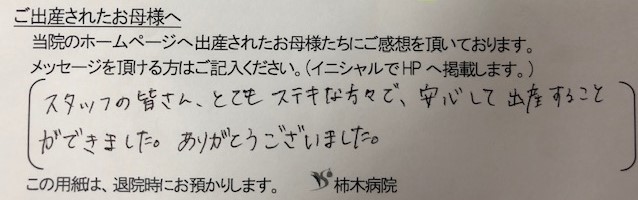 ご出産されたお母様へ
当院のホームページへ出産されたお母様たちにご感想を頂いております。
メッセージを頂ける方はご記入ください。（イニシャルでHPへ掲載します。）
スタッフの皆さん、とてもステキな方々で、安心して出産すること
ができました。ありがとうございました。
この用紙は、退院時にお預かりします。 柿木病院